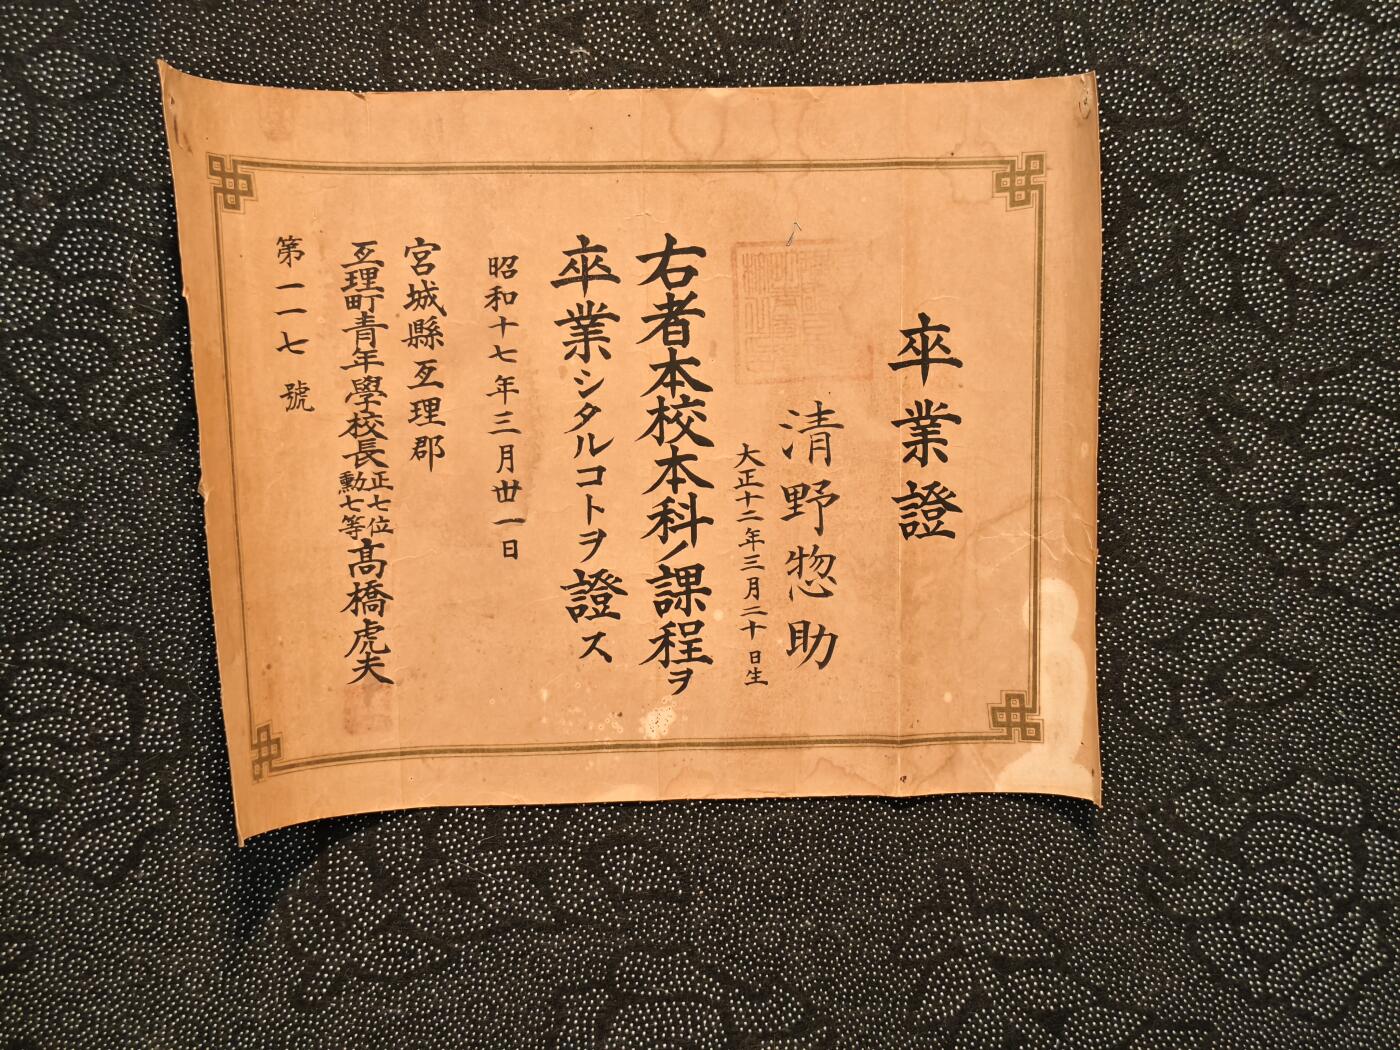 卒業證
清野惣助
大正十二年三月二十日生
右者本校本科ノ課程ヲ
卒業シタルコトヲ證ス
昭和十七年三月丗一日
宮城縣亙理郡
亙理町青年學校長正七位勳七等髙橋虎夫
第一一七號